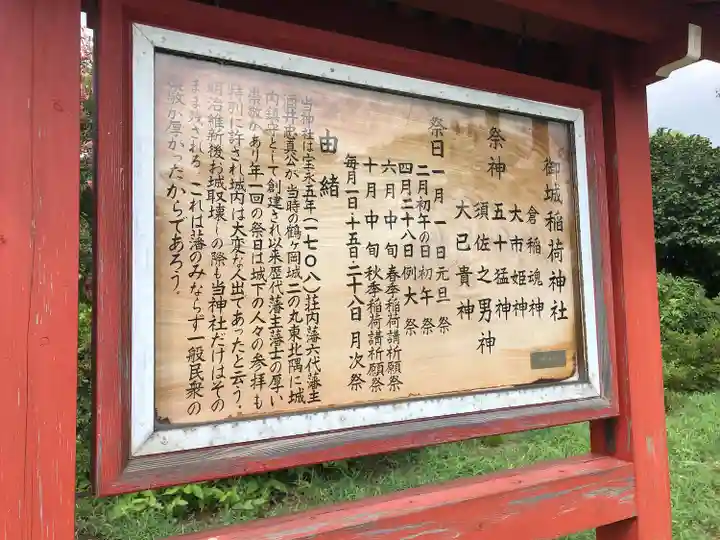 御城稲荷神社
祭神
倉稲魂神
大市姫神
五十猛神
須佐之男神
大已貴神
祭日
一月一日元旦祭
二月初午の日初午祭
四月二十八日例大祭
六月中旬春季稲荷講祈願祭
十月中旬秋季稲荷講祈願祭
毎月一日・十五日・二十八日月次祭
由緒
当神社は宝永五年(一七〇八)荘内藩六代藩主
酒井忠真公が当時の鶴ヶ岡城二の丸東北隅に城
内鎮守として創建され以来歴代藩主藩士の厚い
崇敬があり年一回の祭日は城下の人々の参拝も
特別に許され城内は大変な人出であったと云う.
明治維新後お城取壊しの際も当神社だけはその
まま残される これは藩のみならず一般民衆の
崇敬が厚かったからであろう.